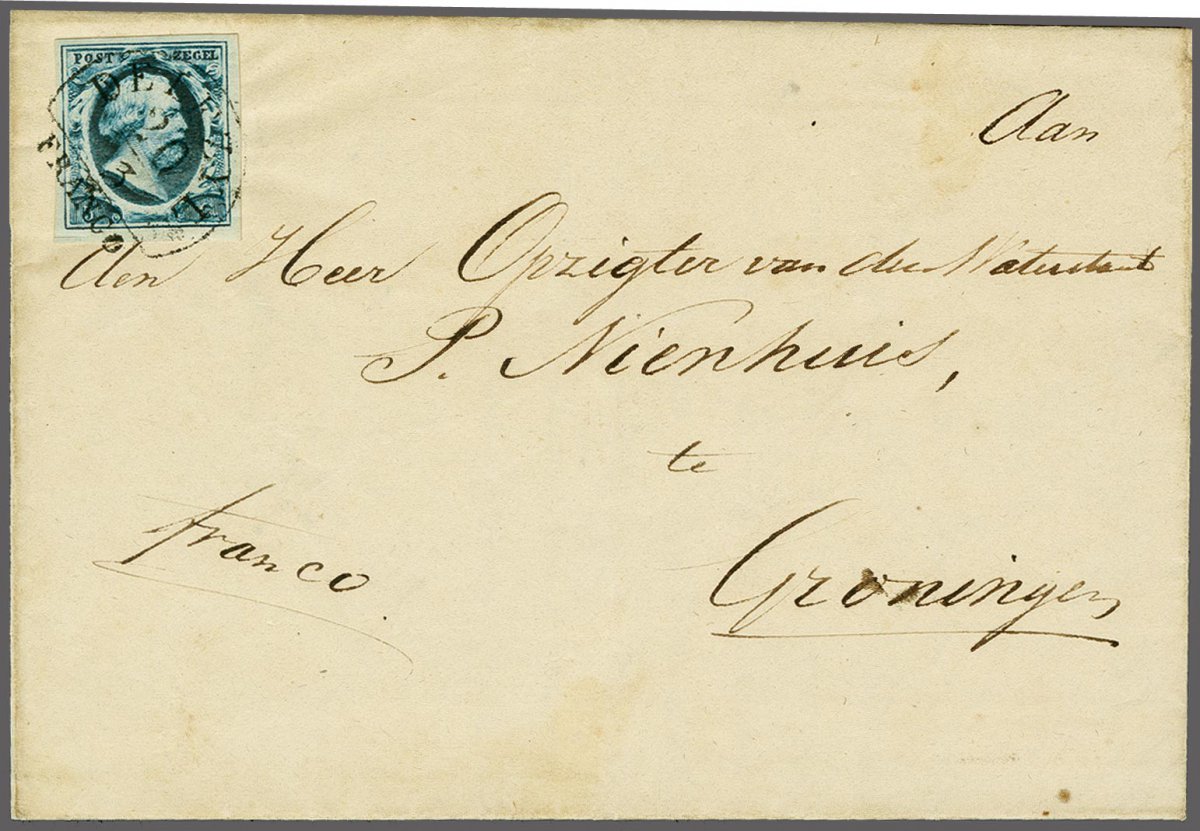 POST ZEGEL
DELFZIJL
20
3
FRANCO
Aan
den Heer Opzigter van den Waterstaat
P. Nienhuis,
te
franco.
Groningen